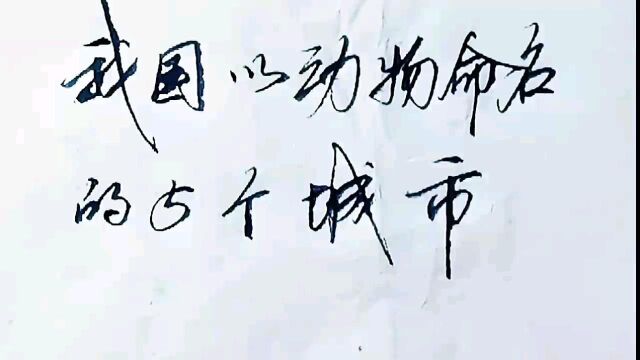 我国以动物命名
的5个城市